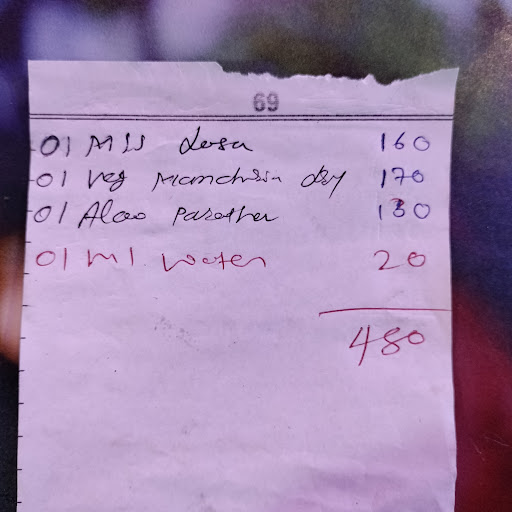 69
01 MSS dosa 160
01 veg Manchurin dry 170
01 Aloo Parathar 130
01 Ml Water 20
480